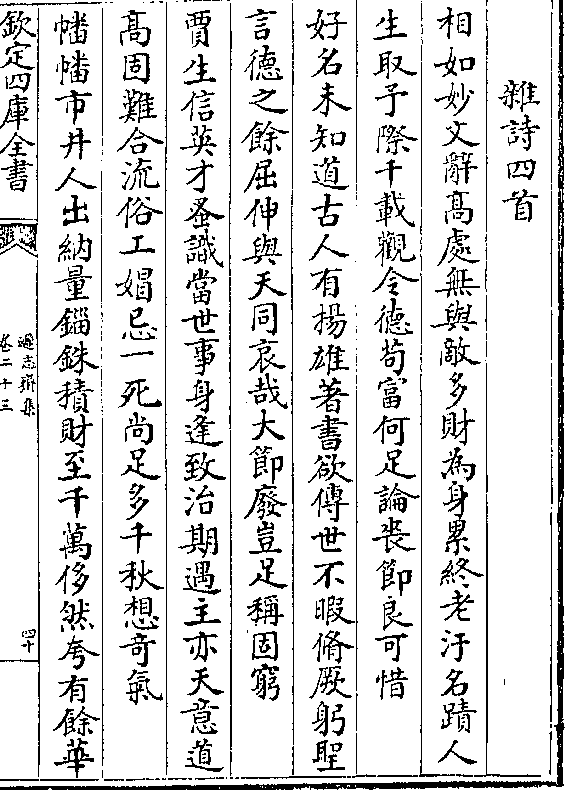 雜詩四首
相如妙文辭髙處無與敵多財為身累終老汙名蹟人
生取予際千載觀令德苟富何足論丧節良可惜
好名未知道古人有揚雄著書欲傳世不暇脩厥躬聖
言德之餘屈伸與天同哀哉大節廢豈足稱固窮
賈生信英才蚤識當世事身逢致治期遇主亦天意道
髙固難合流俗工娼忌一死尚足多千秋想竒氣
幡幡市井人出納量錙銖積財至千萬侈然夸有餘華
欽定四庫全書
卷二十三
四十